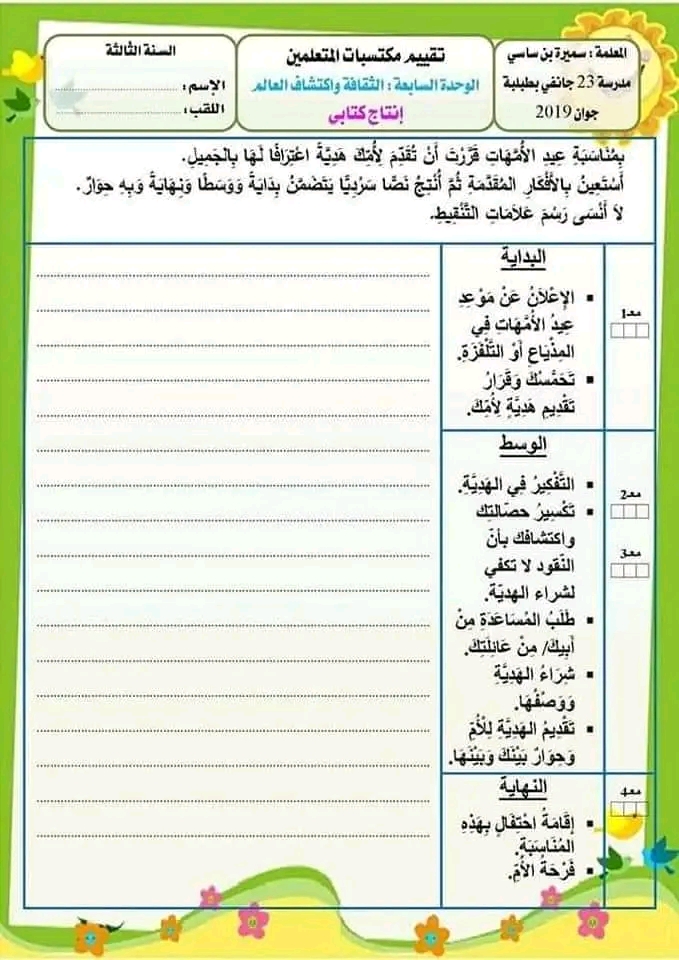 المعلمة : سميرة بن ساسي
مدرسة 23 جانفي بطبلبة
جوان 2019
تقييم مكتسبات المتعلمين
الوحدة السابعة : الثقافة واكتشاف العالم
إنتاج كتابي
السنة الثالثة
الإسم :
اللقب :
بِمُنَاسَبَةِ عِيدِ الأُمَّهَاتِ قَرَّرْتَ أَنْ تُقَدِّمَ لِأُمِّكَ هَدِيَّةً اعْتِرَافًا لَهَا بِالجَمِيلِ.
أَسْتَعِينُ بِالأَفْكَارِ المُقَدَّمَةِ ثُمَّ أُنْتِجُ نَصًّا سَرْدِيًّا يَتَضَمَّنُ بِدَايَةً وَوَسَطًا وَنِهَايَةً وَبِهِ حِوَارٌ.
لاَ أَنْسَى رَسْمَ عَلَامَاتِ التَّنْقِيطِ.
البداية
الإِعْلاَنُ عَنْ مَوْعِدِ
عِيدُ الأُمَّهَاتِ فِي
المِذْيَاعِ أَوْ التَّلْفَزَةِ.
تَحَمُّسُكَ وَقَرَارُ
تَقْدِيمِ هَدِيَّةٍ لِأُمِّكَ.
مع1
الوسط
التَّفْكِيرُ فِي الهَدِيَّةِ.
تَكْسِيرُ حصّالتِك
واكتشافك بأنّ
النّقود لا تكفي
لشراء الهديّة.
طَلَبُ المُسَاعَدَةِ مِنْ
أَبِيكَ/ مِنْ عَائِلَتِكَ.
شِرَاءُ الهَدِيَّةِ
وَوَصْفُهَا.
تَقْدِيمُ الهَدِيَّةِ لِلْأُمِّ
وَحِوَارٌ بَيْنَكَ وَبَيْنَهَا.
مع2
مع3
النهاية
إِقَامَةُ احْتِفَالٍ بِهَذِهِ
المُنَاسَبَةِ.
فَرْحَةُ الأُمِّ.
مع4